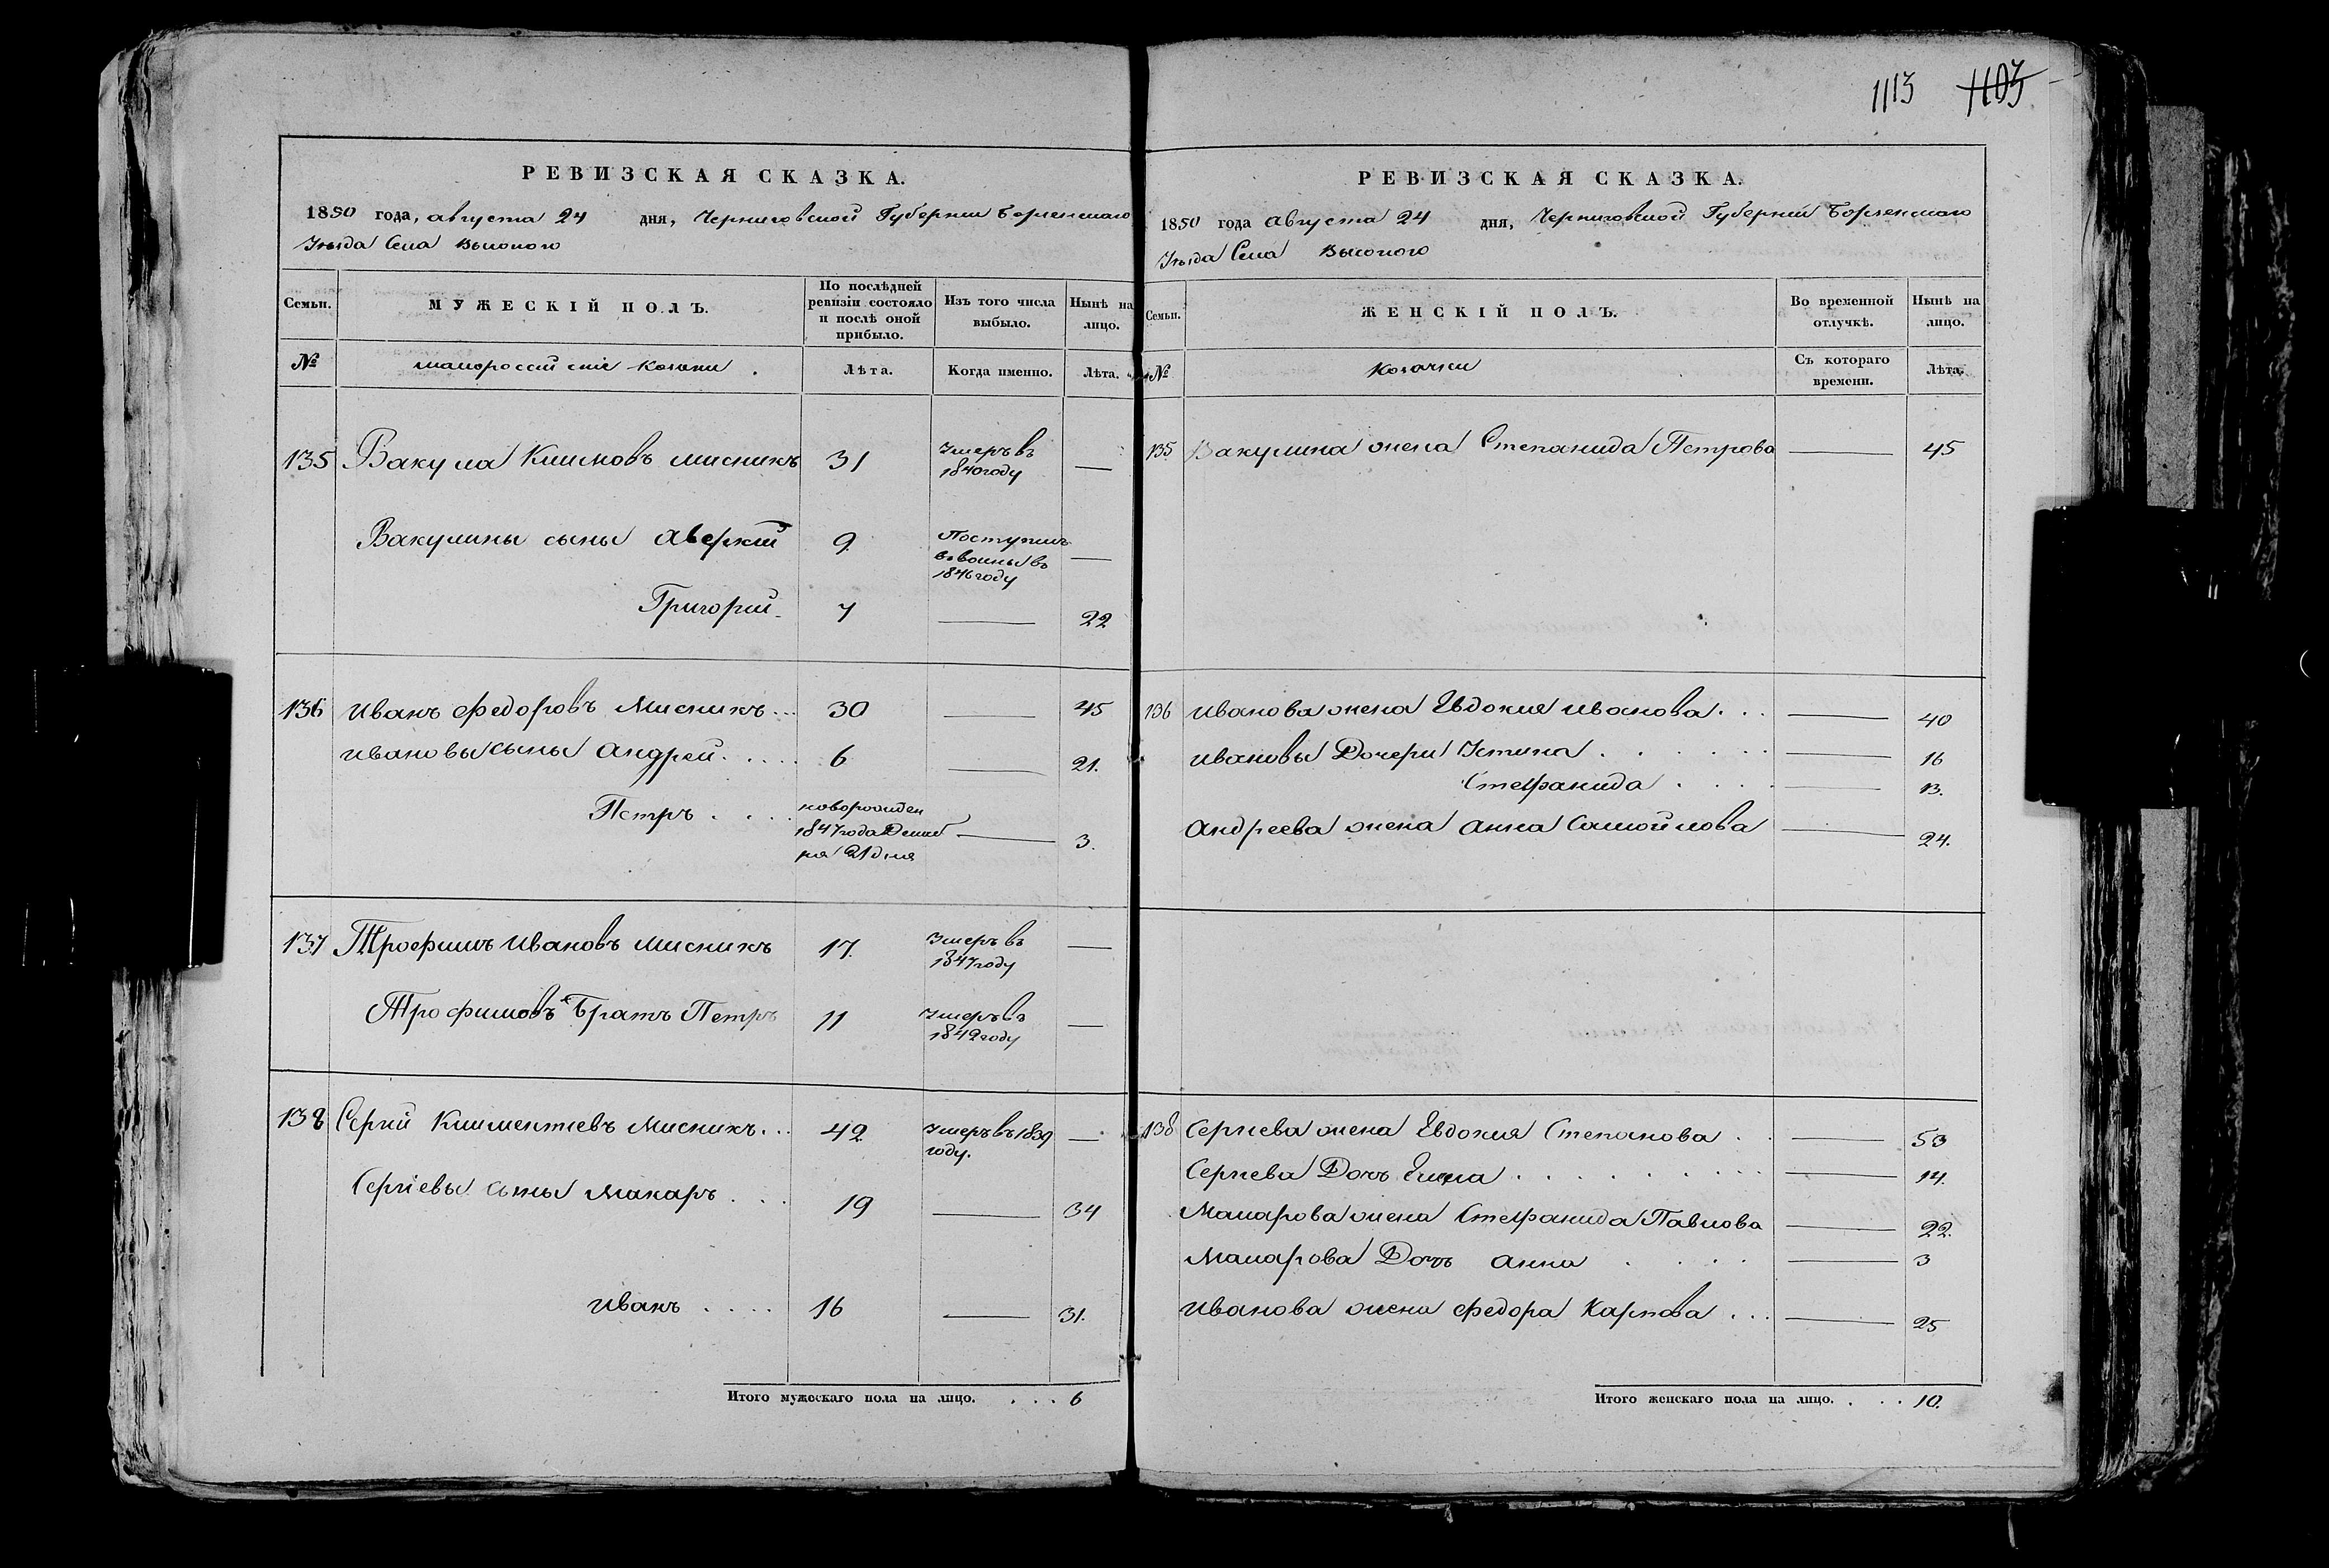 1113 1103
РЕВИЗСКАЯ СКАЗКА.
1850 года, августа 24 дня, Черниговской Губернии Борзенскаго
Уезда Села Высокого
Семьи. МУЖЕСКІЙ ПОЛЪ. По послѣдней ревизіи состояло и послѣ оной прибыло. Изъ того числа выбыло. Нынѣ на лицо.
№ малороссійскіе козаки. Лѣта. Когда именно. Лѣта.
135 Вакула Климовъ Мисникъ 31 Умеръ въ 1840 году —
Вакулины сыны Аверкій 9. Поступилъ въ воины въ 1846 году —
Григорий 7 — 22
136 Иванъ Федоровъ Мисникъ... 30 — 45
Ивановы сыны Андрей..... 6 — 21.
Петръ.... новорожден 1847 года Декаб ря 21 дня — 3.
137 Трофимъ Ивановъ Мисникъ 17. Умеръ въ 1847 году —
Трофимовъ Братъ Петръ 11 Умеръ въ 1842 году —
138 Сергий Климентиевъ Мисникъ... 42 Умеръ въ 1839 году. —
Сергіевы сыны Макаръ... 19 — 34
Иванъ.... 16 — 31.
Итого мужескаго пола на лицо.... 6
РЕВИЗСКАЯ СКАЗКА.
1850 года августа 24 дня, Черниговской Губерніи Борзенскаго
Уезда Села Высокого
Семьи. ЖЕНСКІЙ ПОЛЪ. Во временной отлучкѣ. Нынѣ на лицо.
№ Козачки Съ котораго времени. Лѣта.
135 Вакулина жена Степанида Петрова — 45
136 Иванова жена Евдокия Иванова... — 40
Ивановы Дочери Устина...... — 16
Стефанида.... — 13.
Андреева жена Анна Самойлова — 24.
138 Сергиева жена Евдокия Степанова.. — 53
Сергиева Дочь Елена......... — 14.
Макарова жена Стефанида Павлова — 22.
Макарова Дочь Анна.... — 3
Иванова жена Федора Карпова... — 25
Итого женскаго пола на лицо.... 10.